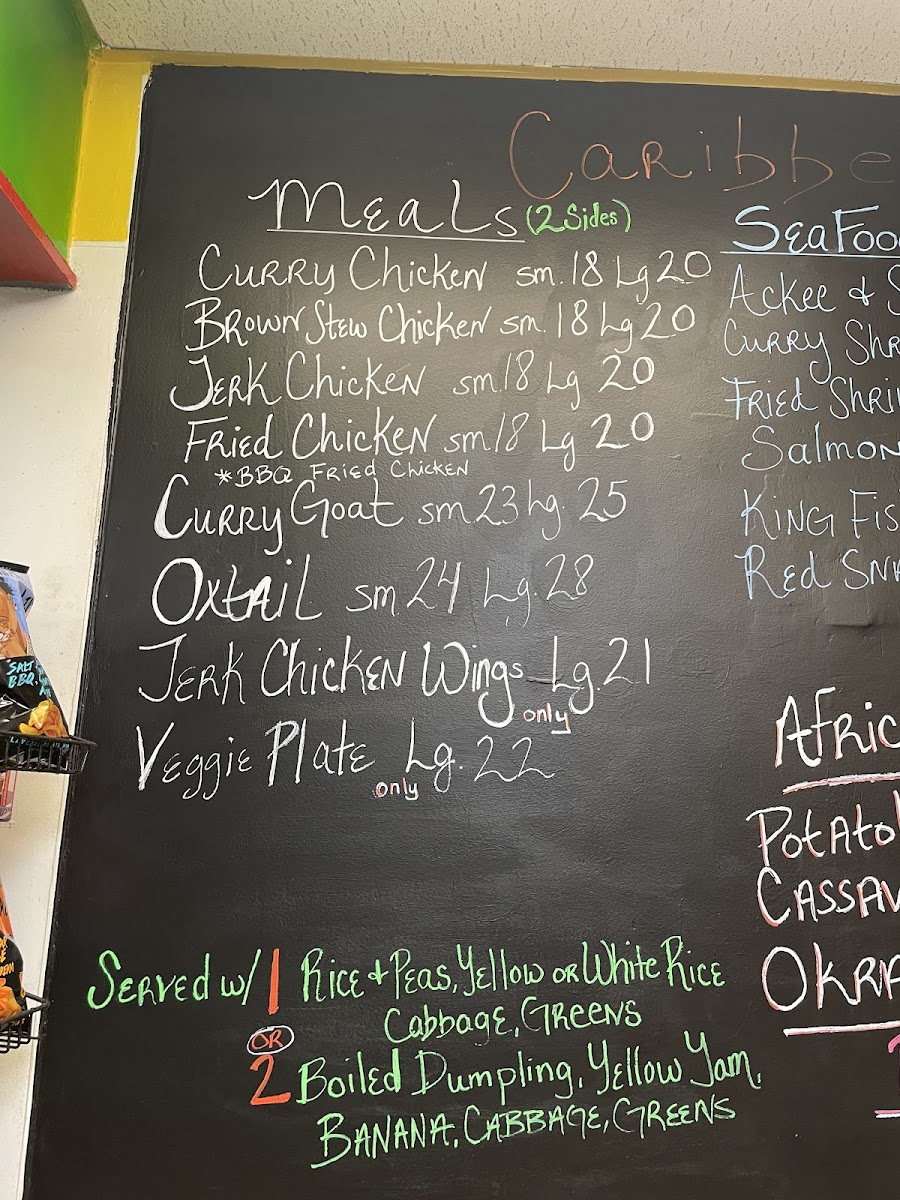 Caribbe
Meals (2 Sides)
Curry Chicken sm. 18 Lg 20
Brown Stew Chicken sm. 18 Lg 20
Jerk Chicken sm 18 Lg 20
Fried Chicken sm 18 Lg 20
*BBQ Fried Chicken
Curry Goat sm 23 Lg. 25
Oxtail sm 24 Lg. 28
Jerk Chicken Wings Lg. 21
only
Veggie Plate Lg. 22
only
Served w/ 1 Rice + Peas, Yellow or White Rice
Cabbage, Greens
OR
2 Boiled Dumpling, Yellow Yam,
Banana, Cabbage, Greens
SeaFoo
Ackee & S
Curry Shr
Fried Shri
Salmon
King Fis
Red Sna
Afric
Potato
Cassav
Okra
SALT
BBQ